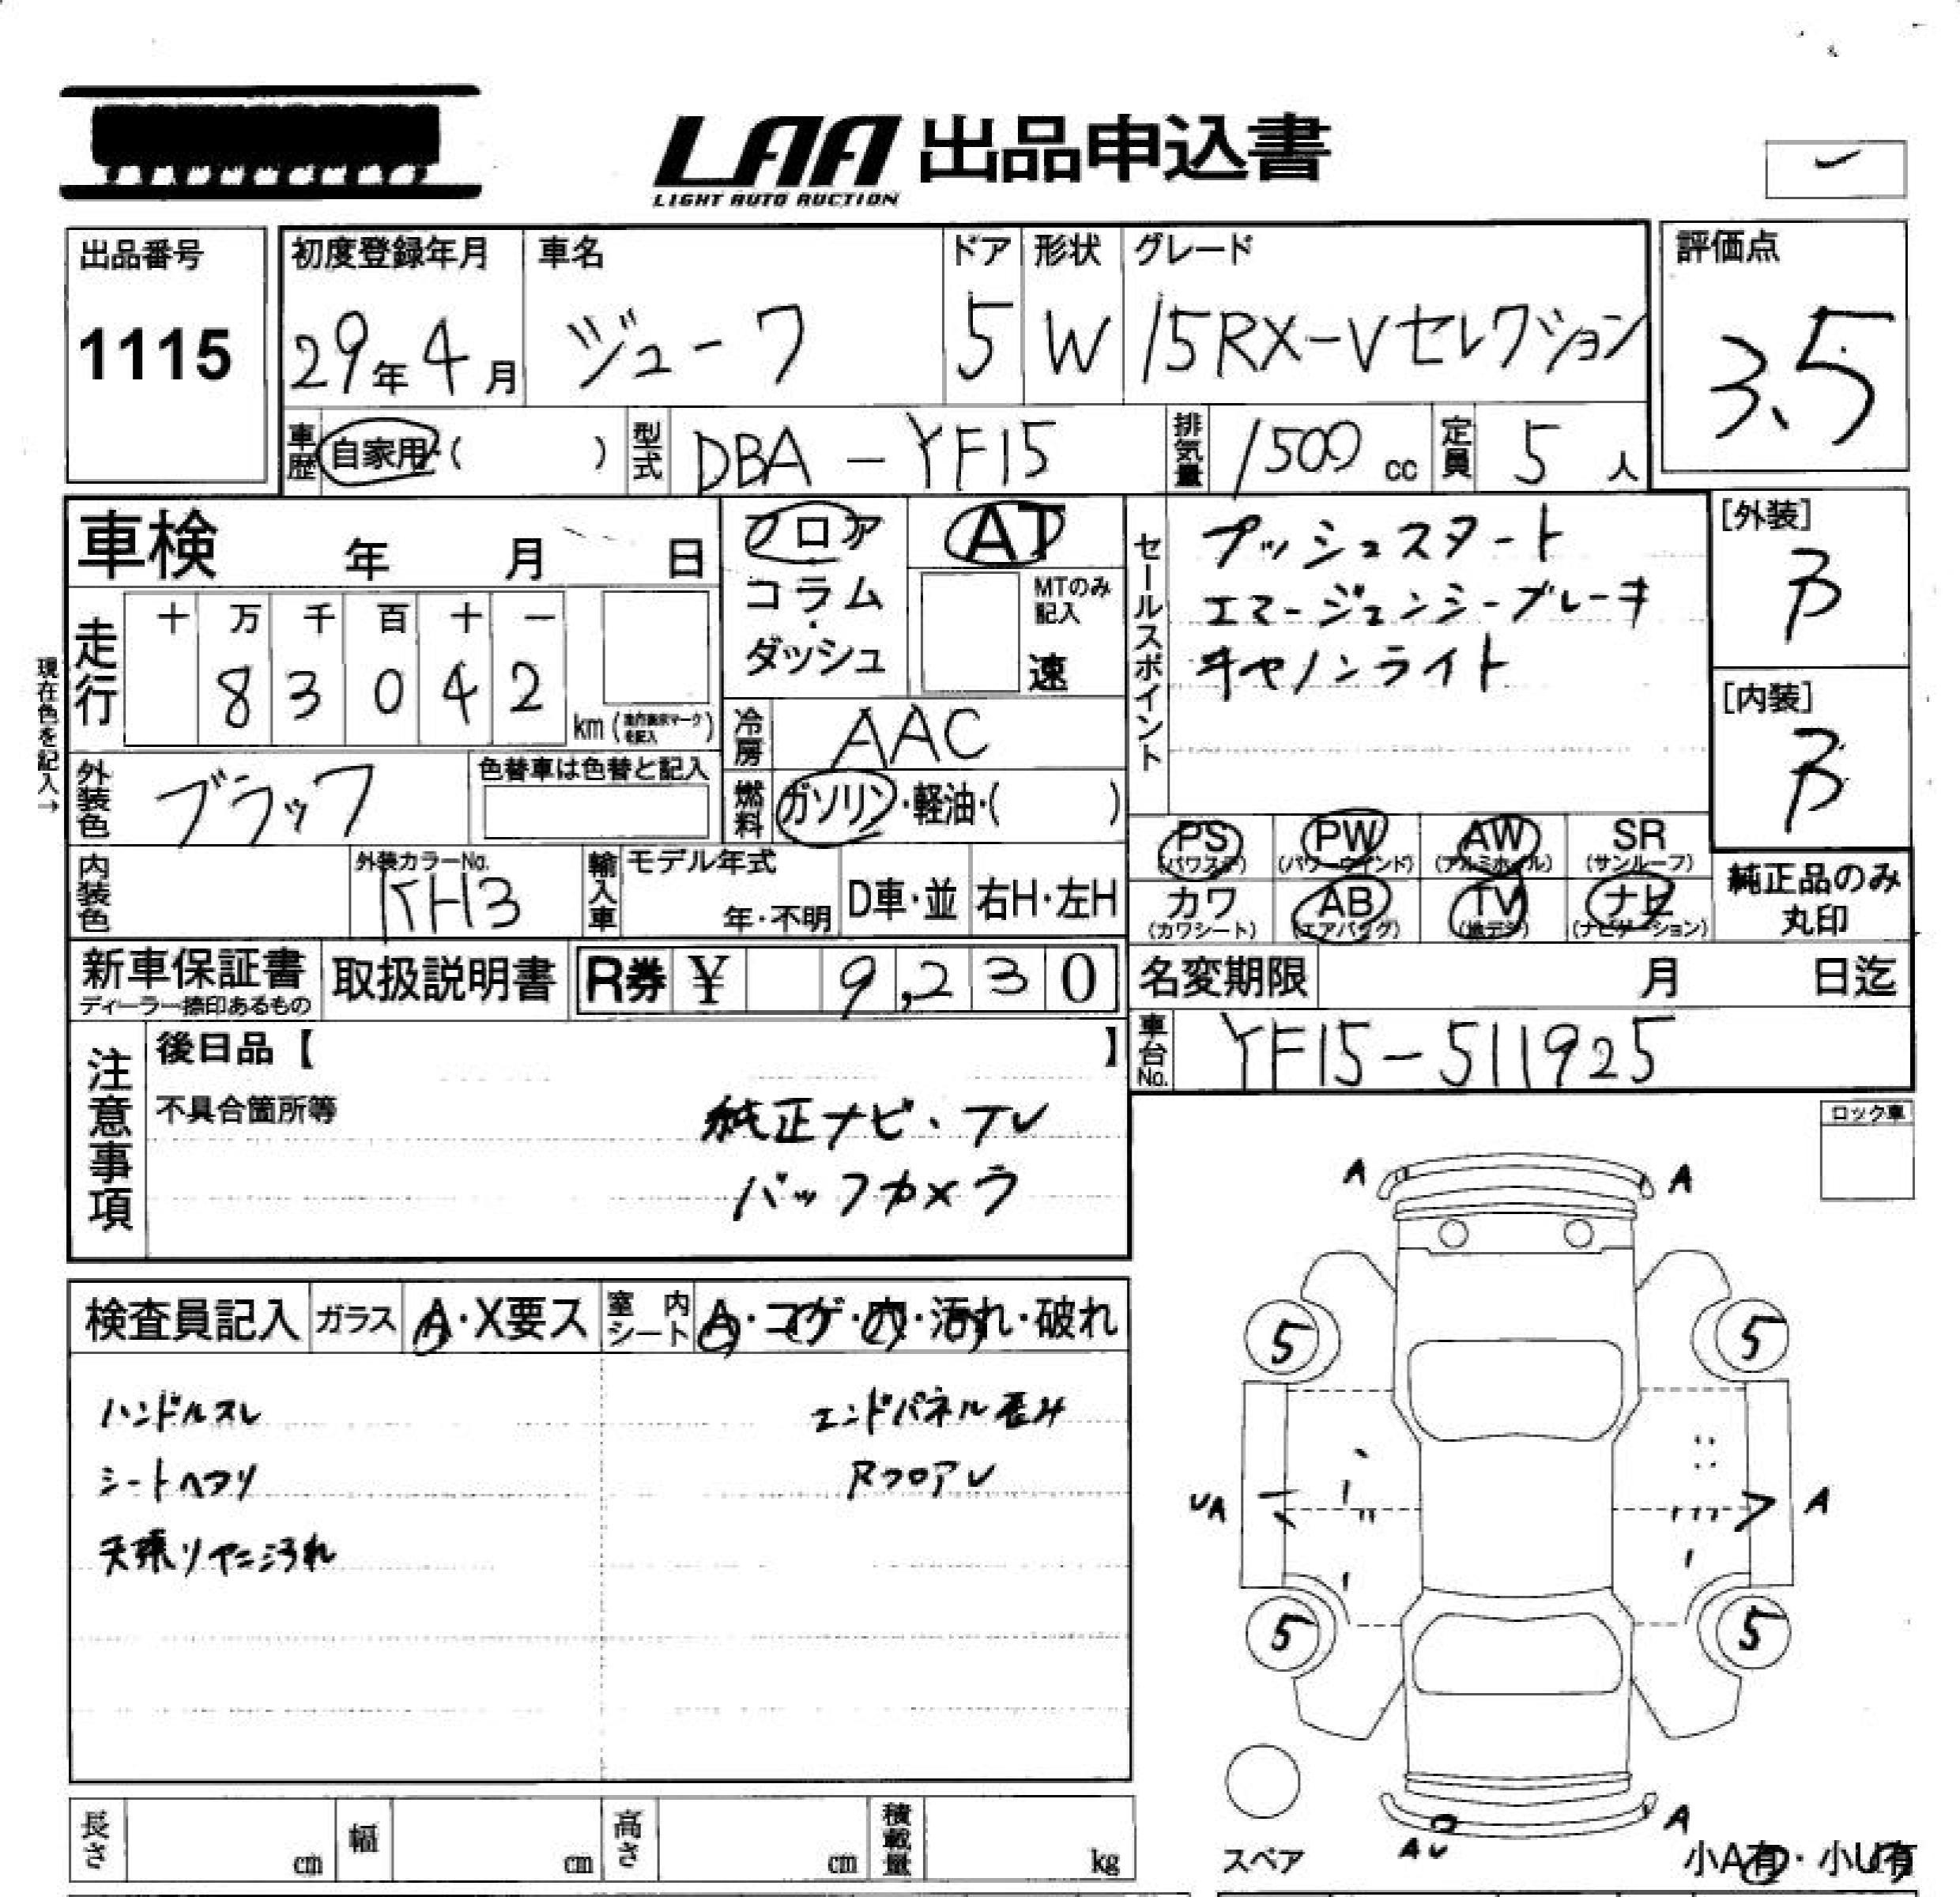 LAA 出品申込書
LIGHT AUTO AUCTION
出品番号
1115
初度登録年月
29年4月
車名
ジューク
ドア
5
形状
W
グレード
15RX-Vセレクション
評価点
3.5
車歴
自家用・( )
型式
DBA-YF15
排気量
1500 cc
定員
5 人
車検 年 月 日
フロア
コラム
・
ダッシュ
AT
MTのみ
記入
速
セールスポイント
プッシュスタート
エマージェンシーブレーキ
キセノンライト
[外装]
B
[内装]
B
現在色を記入→
走行
十 万 千 百 十 一
8 3 0 4 2
km
冷房
AAC
外装色
ブラック
色替車は色替と記入
燃料
ガソリン・軽油・( )
PS
(パワステ)
PW
(パワーウインド)
AW
(アルミホイル)
SR
(サンルーフ)
内装色
外装カラーNo.
KH3
輸入車
モデル年式
年・不明
D車・並
右H・左H
カワ
(カワシート)
AB
(エアバッグ)
TV
(地デジ)
ナビ
(ナビゲーション)
純正品のみ
丸印
新車保証書
ディーラー捺印あるもの
取扱説明書
R券 ¥ 9,230
名変期限 月 日迄
注意事項
後日品【 】
車台No.
YF15-511925
不具合箇所等
純正ナビ・TV
バックカメラ
ロック車
A A
検査員記入
ガラス
A・X要ス
室内シート
A・コゲ・穴・汚れ・破れ
5 5
ハンドルスレ
エンドパネル歪み
シートヘタリ
RフロアU
UA A
天張リヤニ汚れ
5 5
長さ cm
幅 cm
高さ cm
積載量 kg
スペア
AU
A
小A有・小U有